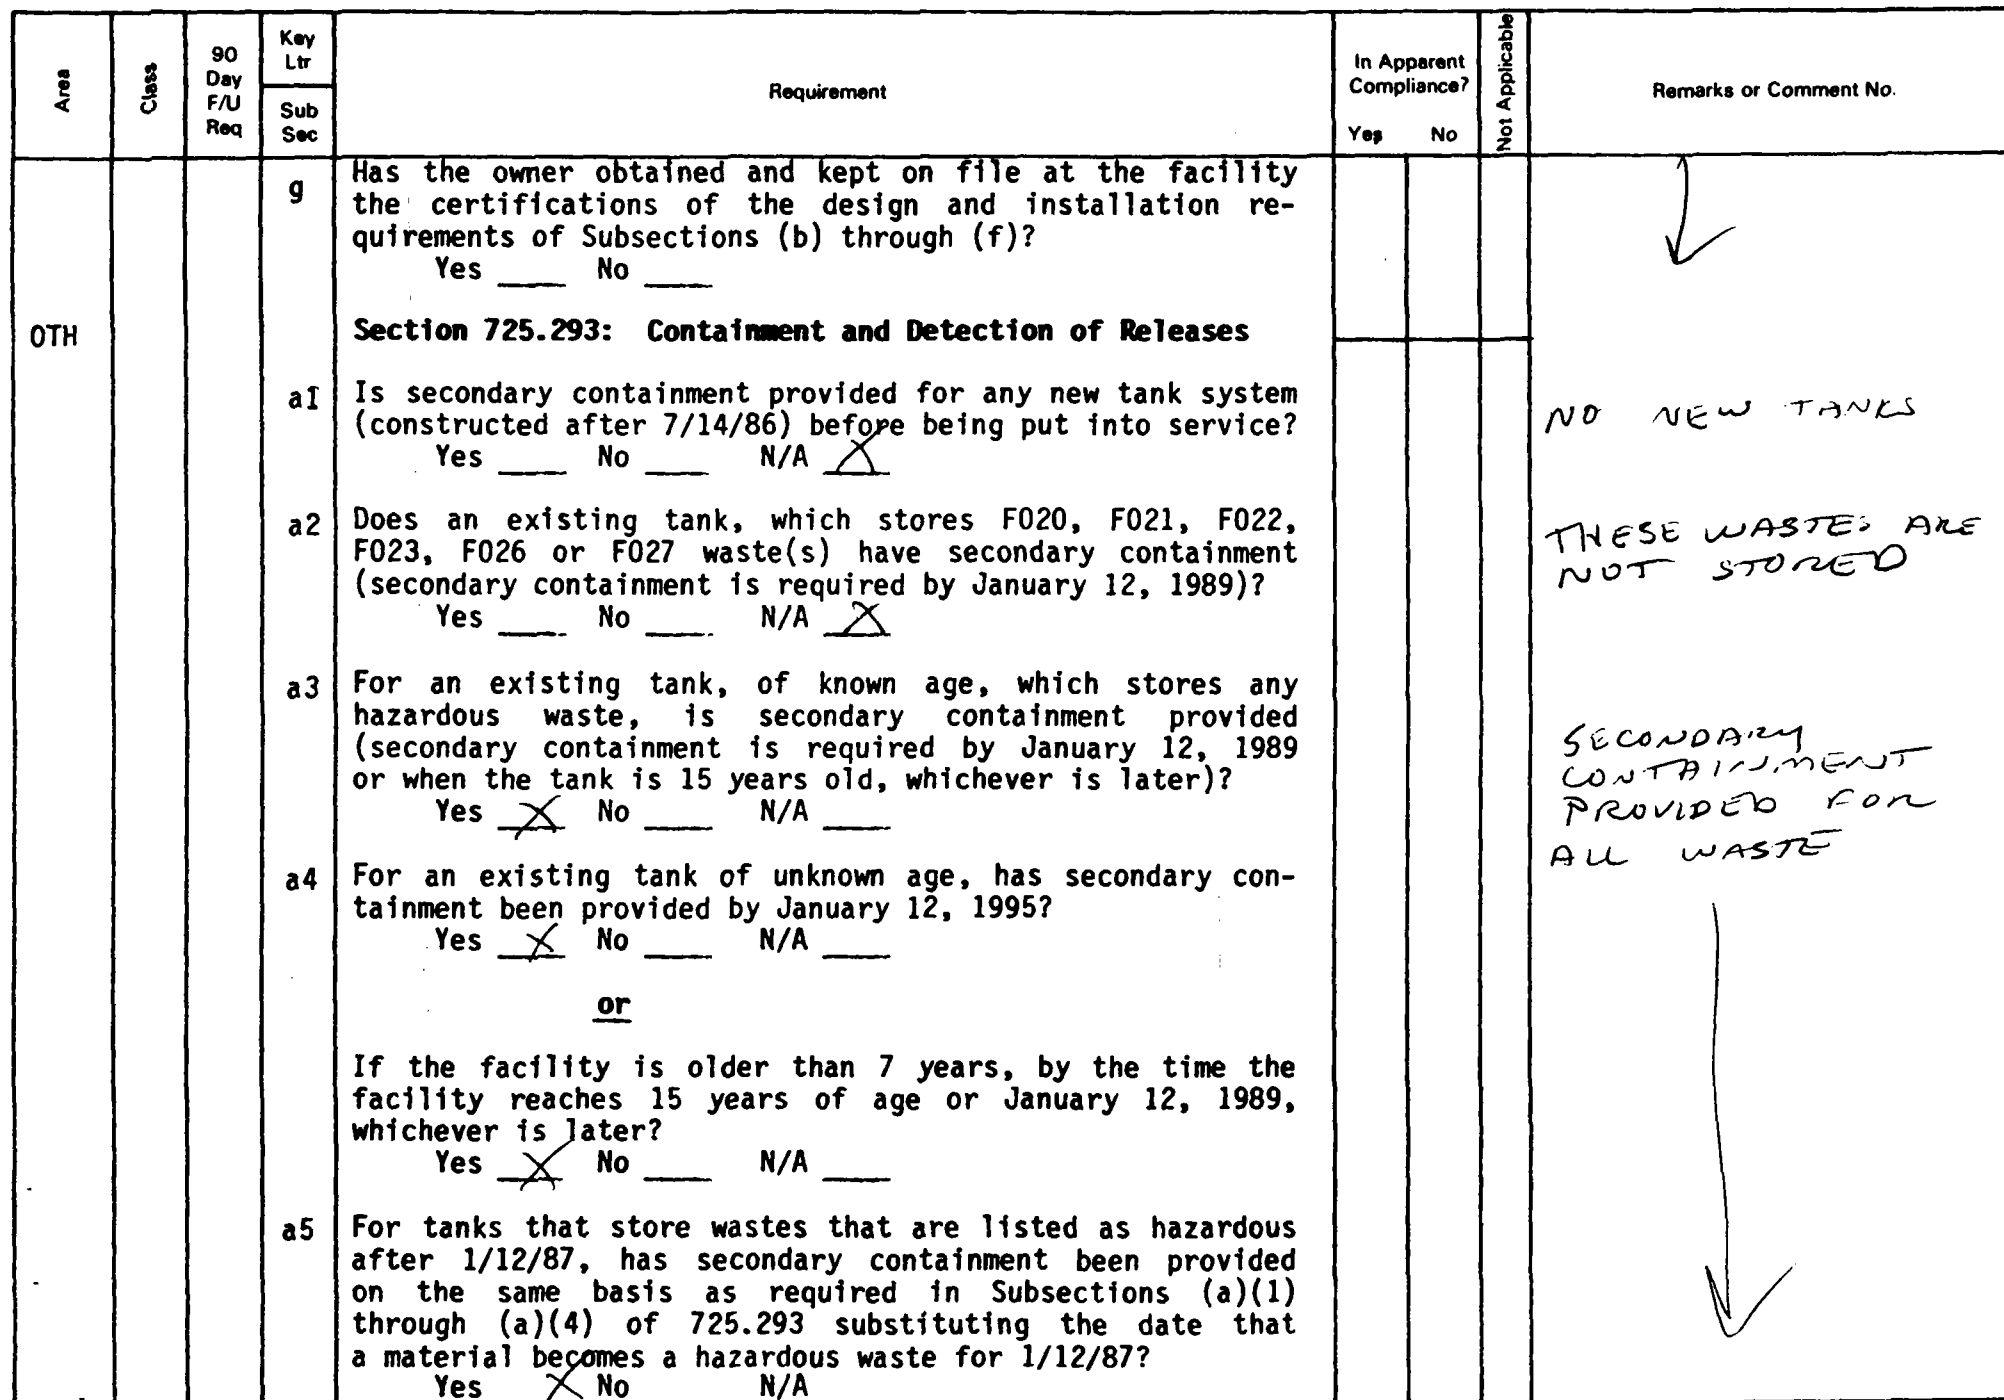 Area
Class
90
Day
F/U
Req
Key
Ltr
Sub
Sec
Requirement
In Apparent
Compliance?
Yes No
Not Applicable
Remarks or Comment No.
g
Has the owner obtained and kept on file at the facility
the certifications of the design and installation re-
quirements of Subsections (b) through (f)?
Yes ____ No ____
OTH
Section 725.293: Containment and Detection of Releases
a1
Is secondary containment provided for any new tank system
(constructed after 7/14/86) before being put into service?
Yes ____ No ____ N/A X
NO NEW TANKS
a2
Does an existing tank, which stores F020, F021, F022,
F023, F026 or F027 waste(s) have secondary containment
(secondary containment is required by January 12, 1989)?
Yes ____ No ____ N/A X
THESE WASTES ARE
NOT STORED
a3
For an existing tank, of known age, which stores any
hazardous waste, is secondary containment provided
(secondary containment is required by January 12, 1989
or when the tank is 15 years old, whichever is later)?
Yes X No ____ N/A ____
SECONDARY
CONTAINMENT
PROVIDED FOR
ALL WASTE
a4
For an existing tank of unknown age, has secondary con-
tainment been provided by January 12, 1995?
Yes X No ____ N/A ____
or
If the facility is older than 7 years, by the time the
facility reaches 15 years of age or January 12, 1989,
whichever is later?
Yes X No ____ N/A ____
a5
For tanks that store wastes that are listed as hazardous
after 1/12/87, has secondary containment been provided
on the same basis as required in Subsections (a)(1)
through (a)(4) of 725.293 substituting the date that
a material becomes a hazardous waste for 1/12/87?
Yes X No N/A